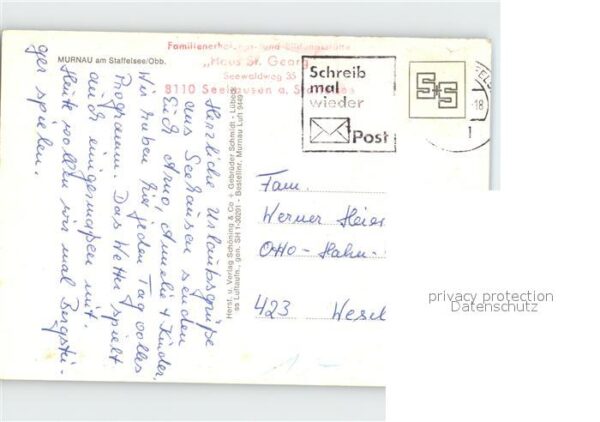 MURNAU am Staffelsee/Obb.
Familienerholungs- und Bildungsstätte
"Haus St. Georg"
Seewaldweg 35
8110 Seehausen a. Staffelsee
Schreib
mal
wieder
Post
S+S
-18
1
Herzliche Urlaubsgrüße
aus Seehausen senden
Euch Arno, Annelie + Kinder.
Wir haben hier jeden Tag volles
Programm. Das Wetter spielt
auch einigermaßen mit.
Heute wollen wir mal Bergstei-
ger spielen.
Herst. u. Verlag Schöning & Co + Gebrüder Schmidt - Lübeck
ss Luftaufn., gen. SH 1-30291 - Bestellnr. Murnau Luft 9449
Fam.
Werner Heier
Otto-Hahn-
423 Wesel
1-
privacy protection
Datenschutz